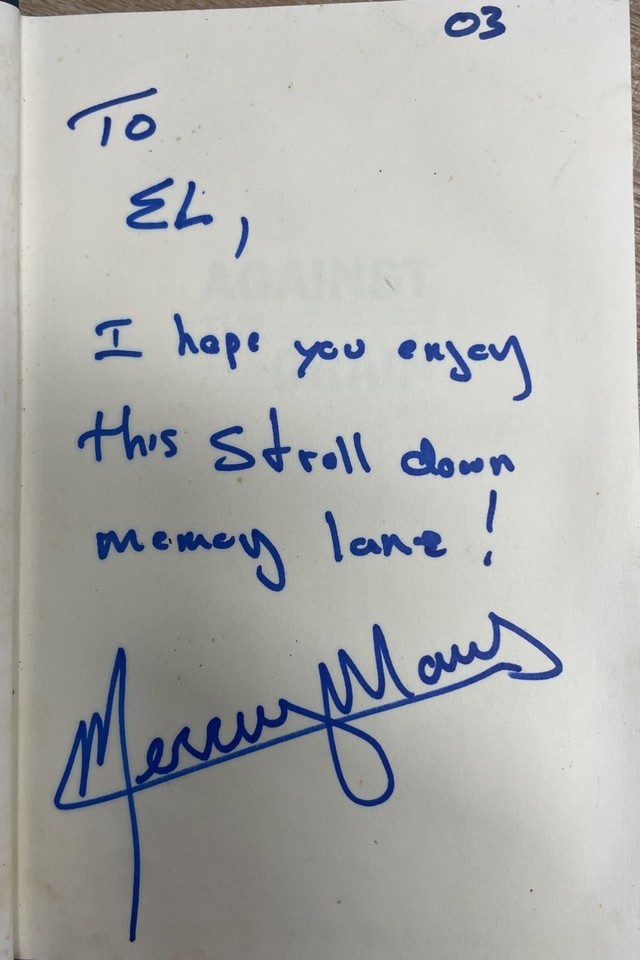 03
To
EL,
I hope you enjoy
this Stroll down
memory lane!